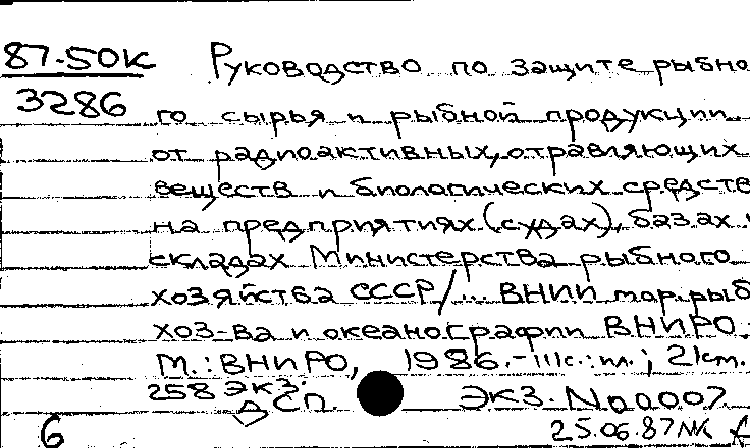 87-50К Руководство по защите рыбно
3286 го сырья и рыбной продукции
от радиоактивных, отравляющих
веществ и биологических средств
на предприятиях (судах), базах и
складах Министерства рыбного
хозяйства СССР/... ВНИИ мор. рыб
хоз-ва и океанографии ВНИРО.
М.: ВНИРО, 1986.-111с.: ил.; 21см.
258 экз.
ДСП. Экз. № 00007
6 25.06.87